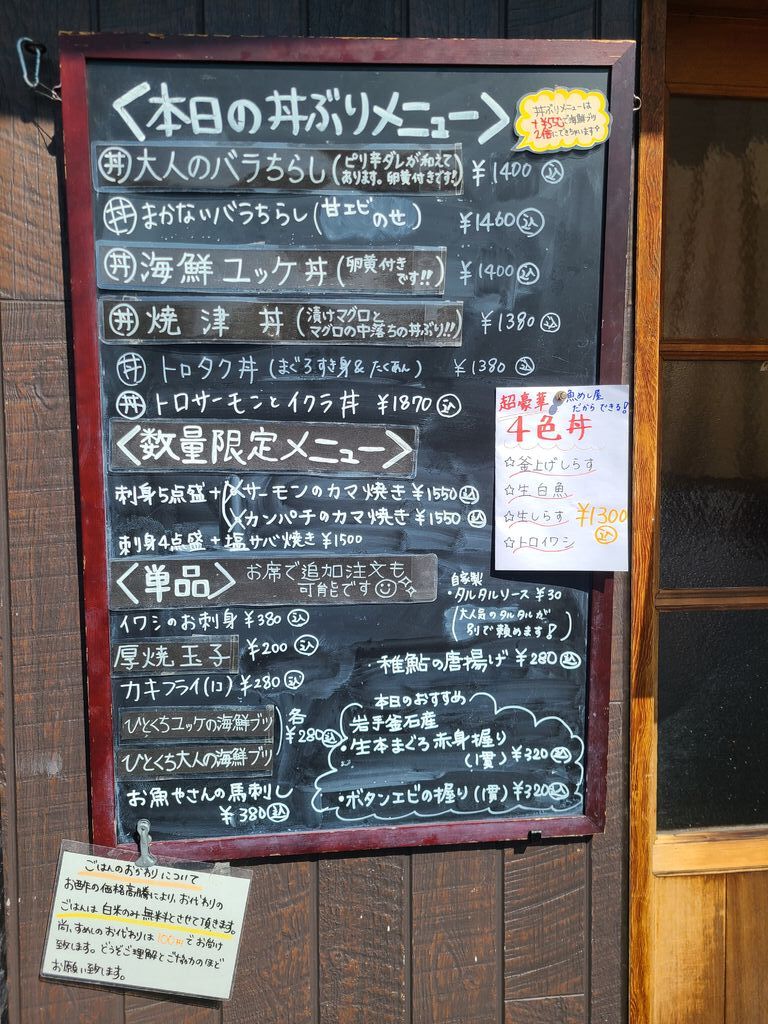 <本日の丼ぶりメニュー>
丼ぶりメニューは
+¥550で海鮮ブツ
2倍にできちゃいます
丼 大人のバラちらし(ピリ辛ダレが和えてあります。卵黄付きです!) ¥1400 込
丼 まかないバラちらし(甘エビのせ) ¥1460 込
丼 海鮮ユッケ丼(卵黄付きです!!) ¥1400 込
丼 焼津丼(漬けマグロとマグロの中落ちの丼ぶり!!) ¥1380 込
丼 トロタク丼(まぐろすき身&たくあん) ¥1380 込
丼 トロサーモンとイクラ丼 ¥1870 込
超豪華 魚めし屋だからできる!
4色丼
☆釜上げしらす
☆生白魚
☆生しらす ¥1300 込
☆トロイワシ
<数量限定メニュー>
刺身5点盛+サーモンのカマ焼き ¥1550 込
カンパチのカマ焼き ¥1550 込
刺身4点盛+塩サバ焼き ¥1500
<単品> お席で追加注文も
可能です
イワシのお刺身 ¥380 込
厚焼玉子 ¥200 込
カキフライ(1コ) ¥280 込
ひとくちユッケの海鮮ブツ
ひとくち大人の海鮮ブツ
各¥280 込
お魚やさんの馬刺し
¥380 込
自家製
・タルタルソース ¥30
(大人気のタルタルが
別で頼めます!)
・稚鮎の唐揚げ ¥280 込
本日のおすすめ
岩手釜石産
・生本まぐろ赤身握り
(1貫) ¥320 込
・ボタンエビの握り(1貫) ¥320 込
ごはんのおかわりについて
お酢の価格高騰により、お代わりの
ごはんは白米のみ無料とさせて頂きます。
尚、すめしのお代わりは100円でお受け
致します。どうぞご理解とご協力のほど
お願い致します。